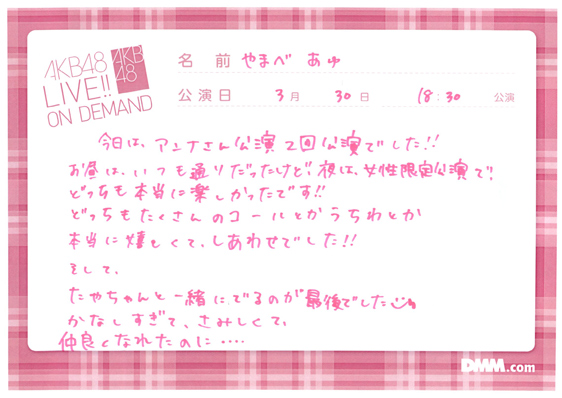 AKB48
LIVE!!
ON DEMAND
AKB
48
名 前 やまべ あゆ
公演日 3月 30日 18:30 公演
今日は、アンナさん公演2回公演でした!!
お昼は、いつも通りだったけど夜は、女性限定公演で!
どっちも本当に楽しかったです!!
どっちもたくさんのコールとかうちわとか
本当に嬉しくて、しあわせでした!!
そして、
たやちゃんと一緒にでるのが最後でした
かなしすぎて、さみしくて、
仲良くなれたのに‥‥
DMM.com